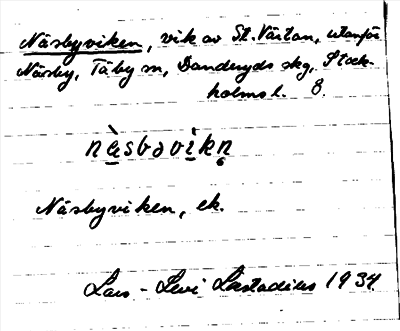 Näsbyviken, vik av St. Värtan, utanför
Näsby, Täby sn, Danderyds skg, Stock-
holms l. 8.
nä̀sbəvìkn̥
Näsbyviken, ek.
Lars-Levi Læstadius 1934